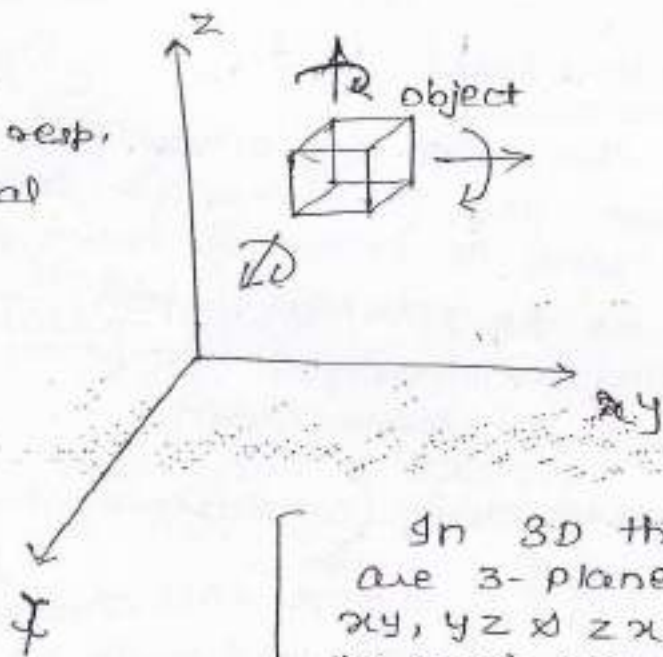 z
object
resp.
al
y
In 3D th
are 3-plane
xy, yz & zx